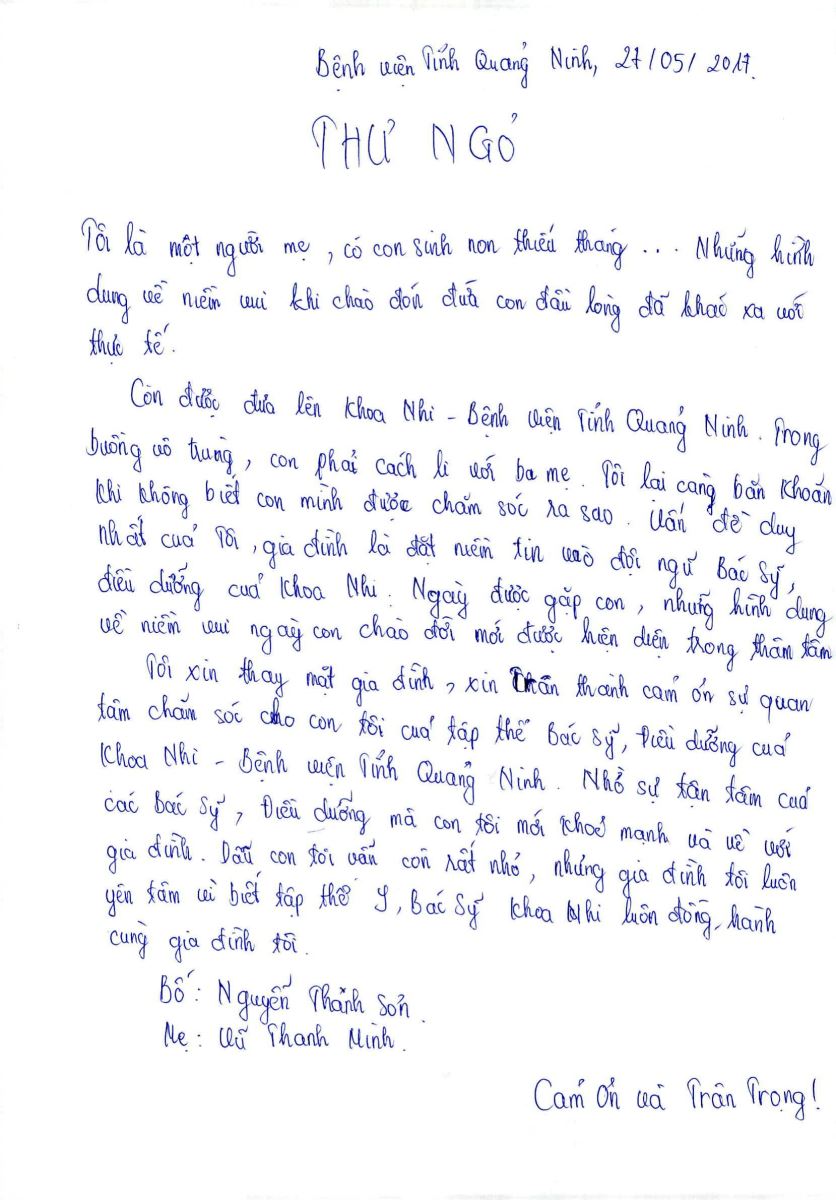 Bệnh viện Tỉnh Quảng Ninh, 27/05/2017.
THƯ NGỎ
Tôi là một người mẹ, có con sinh non thiếu tháng ... Những hình
dung về niềm vui khi chào đón đứa con đầu lòng đã khác xa với
thực tế.
Con được đưa lên Khoa Nhi - Bệnh viện Tỉnh Quảng Ninh. Trong
buồng vô trùng, con phải cách li với ba mẹ. Tôi lại càng băn khoăn
khi không biết con mình được chăm sóc ra sao. Vấn đề duy
nhất của Tôi, gia đình là đặt niềm tin vào đội ngũ Bác Sỹ,
điều dưỡng của Khoa Nhi. Ngày được gặp con, những hình dung
về niềm vui ngày con chào đời mới được hiện diện trong thâm tâm
Tôi xin thay mặt gia đình, xin Trân thành cảm ơn sự quan
tâm chăm sóc cho con tôi của tập thể Bác Sỹ, Điều dưỡng của
Khoa Nhi - Bệnh viện Tỉnh Quảng Ninh. Nhờ sự tận tâm của
các Bác Sỹ, Điều dưỡng mà con tôi mới khoẻ mạnh và về với
gia đình. Dẫu con tôi vẫn còn rất nhỏ, nhưng gia đình tôi luôn
yên tâm vì biết tập thể Y, Bác Sỹ Khoa Nhi luôn đồng hành
cùng gia đình tôi.
Bố: Nguyễn Thành Sơn.
Mẹ: Vũ Thanh Minh.
Cảm Ơn và Trân Trọng!